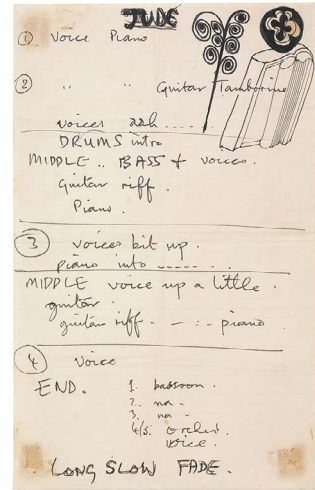 JUDE
① Voice Piano
② " " Guitar Tamborine
voices aah.....
DRUMS intro
MIDDLE .. BASS + voices.
Guitar riff.
Piano.
③ voices bit up.
piano into -----.
MIDDLE voice up a little.
guitar.
guitar riff - - : - piano
④ Voice
END. 1. bassoon.
2. na -
3. na -
4/5. orchest.
voice.
LONG SLOW FADE.